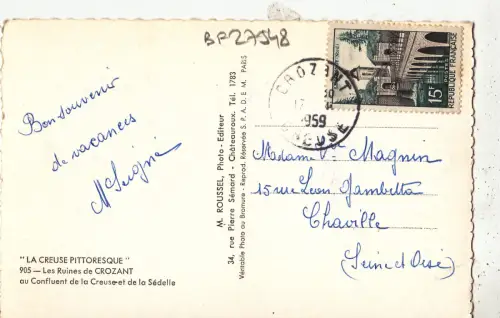 BP27548
CROZANT
1959
CREUSE
15F
POSTES
REPUBLIQUE FRANÇAISE
Bon souvenir
de vacances
M. ROUSSEL, Photo-Editeur
34, rue Pierre Sémard - Châteauroux. Tél. 1783
Véritable Photo au Bromure - Reprod. Réservée S.P.A.D.E.M. PARIS
Madame Vve Magnin
15 rue Léon Gambetta
Chaville
(Seine et Oise)
" LA CREUSE PITTORESQUE "
905 — Les Ruines de CROZANT
au Confluent de la Creuse et de la Sédelle